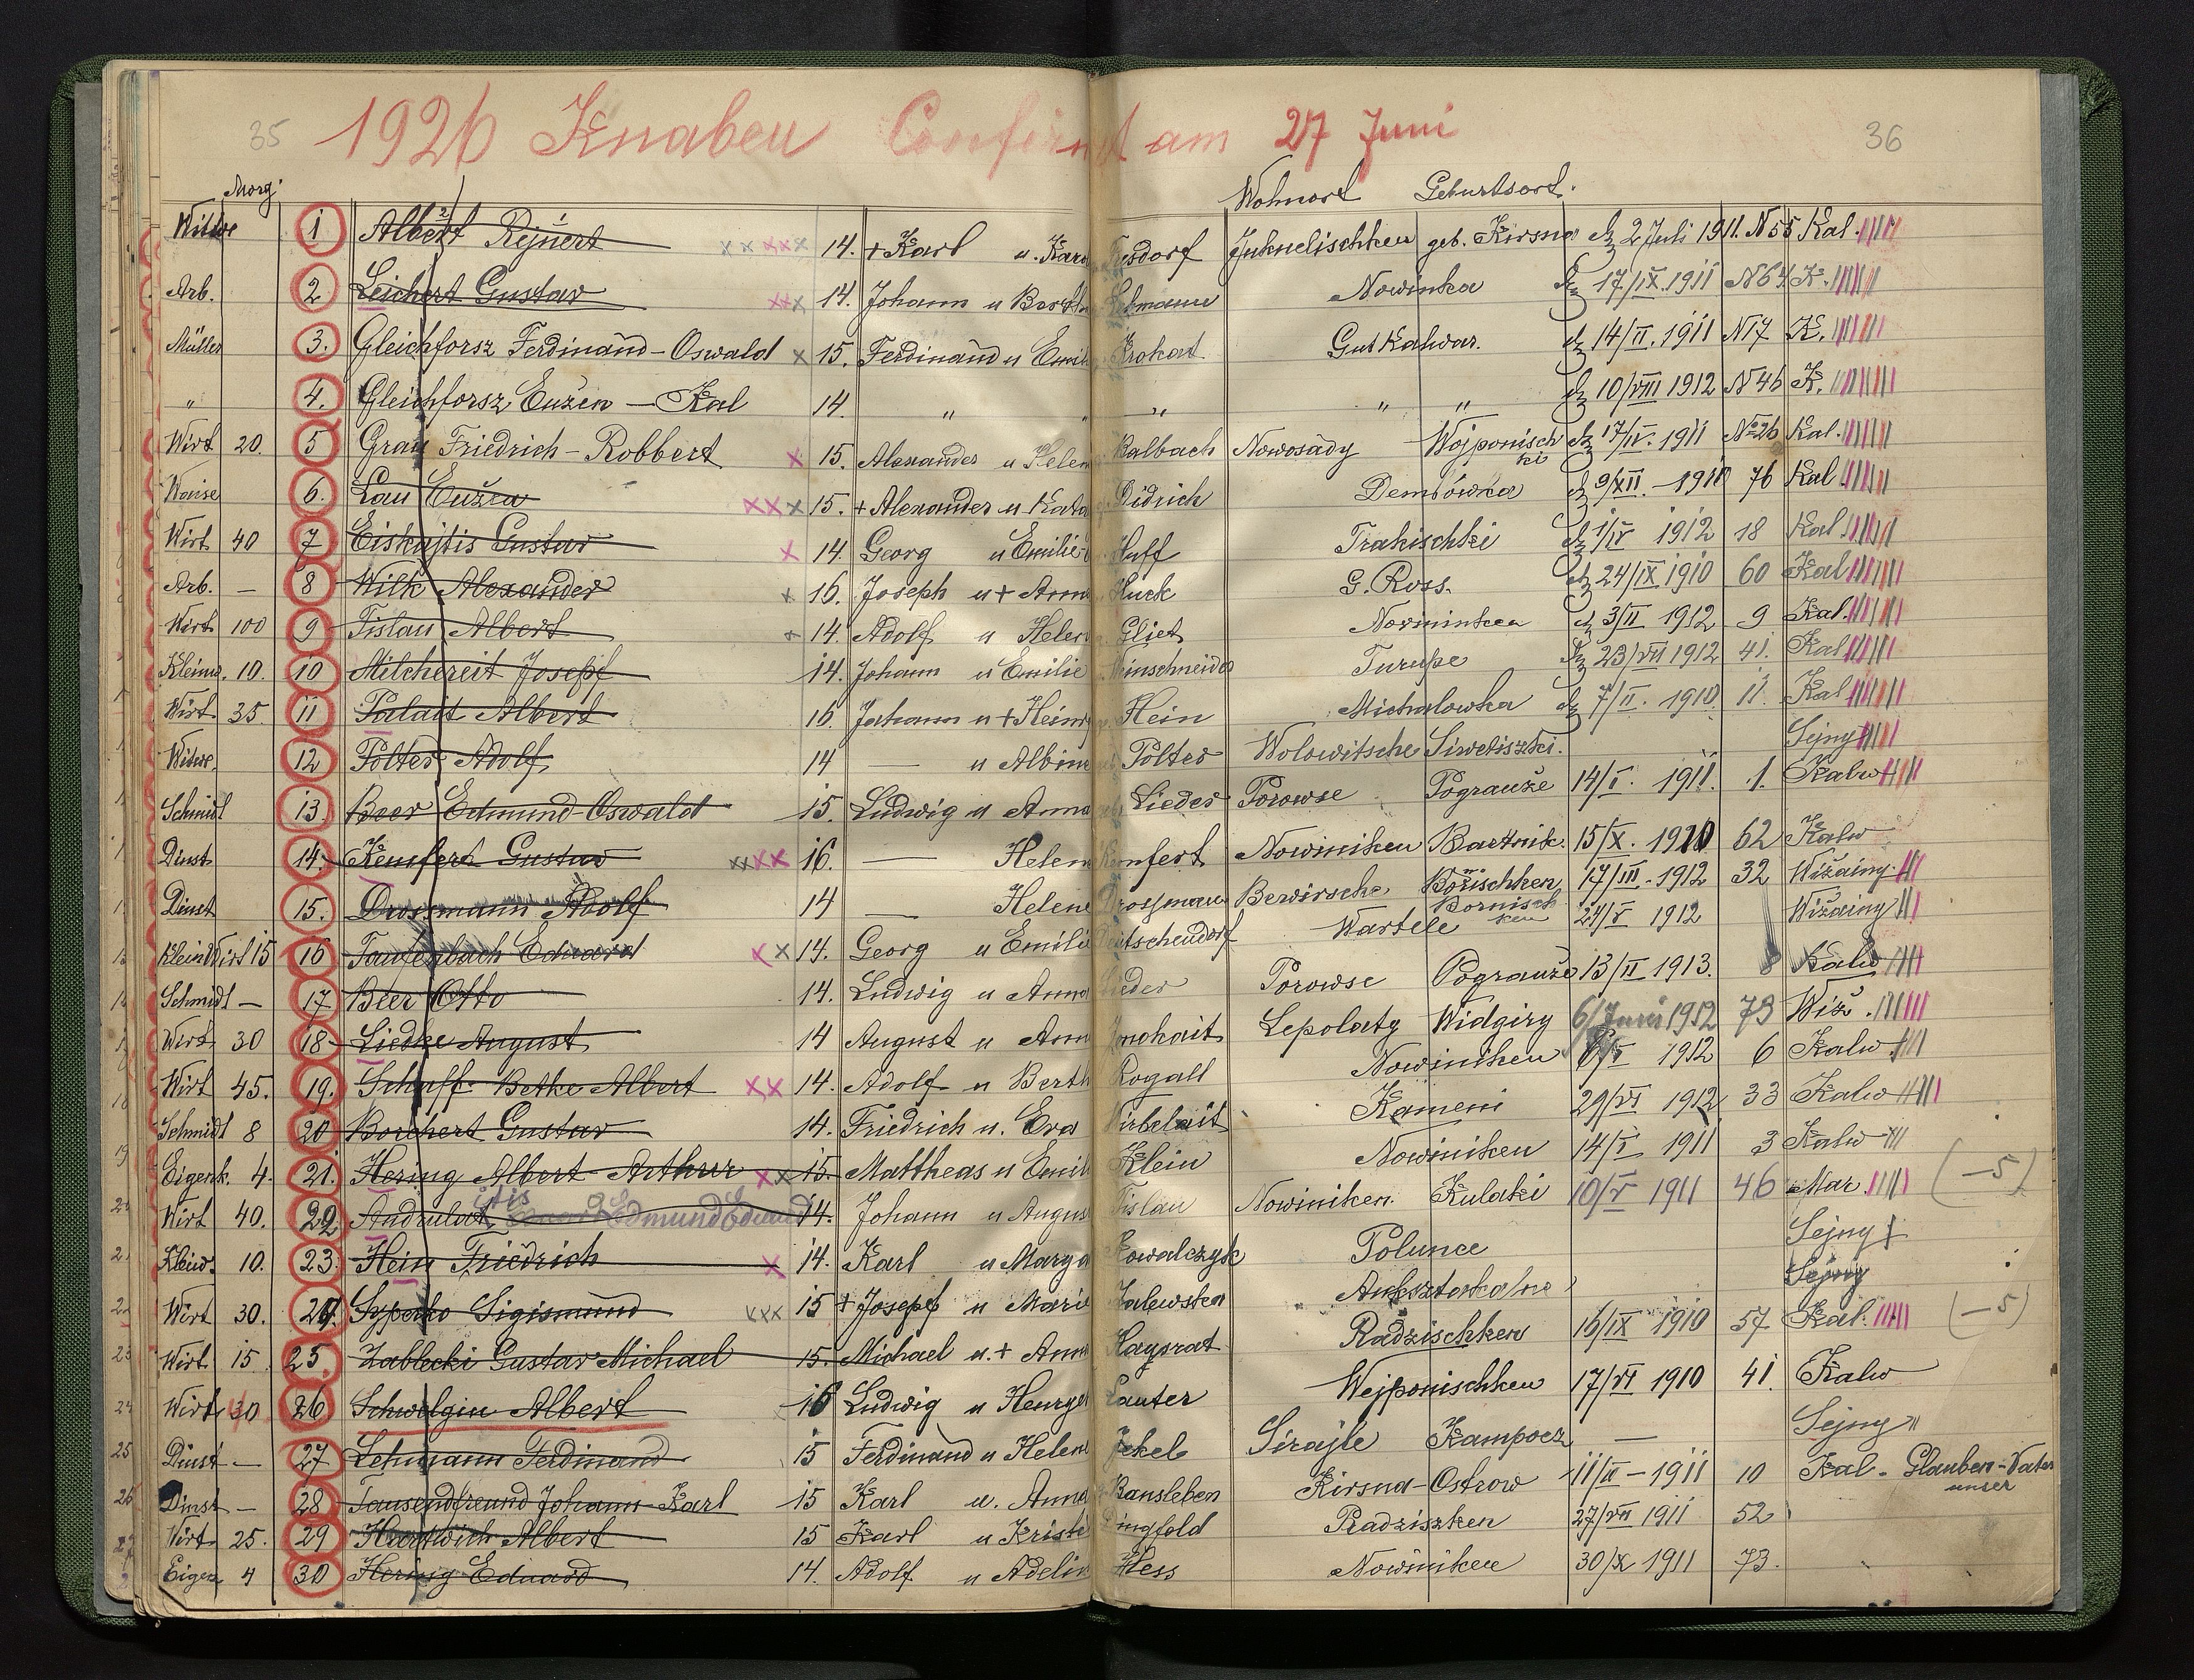 35 1926 Knaben Confirmt am 27 Juni 36
Morg. Wohnort Geburtsort.
Witwe 1 Albert Rejnert 14. + Karl u. Karo Fresdorf Juknelischken geb. Kirsna d. 2 Juli 1911. N 55 Kal.
Arb. 2 Leichert Gustav 14. Johann u Bertha Lehmann Nowinka d. 17/IX. 1911 N 64 K.
Müller 3. Gleichforsz Ferdinand-Oswald x 15. Ferdinand u Emil Krokat Gut Kalwar. d. 14/II. 1911 N 17 K.
" 4. Gleichforsz Eužen - Kal 14. " " " " " d. 10/VIII 1912 N 46 K.
Wirt 20. 5 Grau Friedrich-Robbert x 15. Alexander u Helen Kalbach Nowosady Wojponischki d. 17/IV. 1911 No 26 Kal.
Waise 6. Lau Eužen xxx 15. + Alexander u Kata Didrich Dembówka d. 9/XII. - 1910 76 Kal
Wirt 40 7 Eiskajtis Gustav x 14. Georg u Emilie Huff Trakischki d. 1/IV 1912 18 Kal
Arb. — 8 Wilk Alexander x 16. Joseph u + Anna Huck G. Ross. d. 24/IX 1910 60 Kal
Wirt 100 9 Tislau Albert x 14. Adolf u Helen Gliet Nowininken d. 3/II 1912 9 Kal.
Kleinw. 10. 10 Milchereit Josepf 14. Johann u Emilie Weinschneider Turupe d. 23/VII 1912 41. Kal
Wirt 35. 11 Palait Albert 16. Johann u + Heinr Hein Michalowka d. 7/II. 1910 11. Kal
Witwe. 12 Polter Adolf 14 — u Albine Polter Wolowitsche Siwetiszki. Sejny
Schmidt 13. Beer Edmund-Oswald 15. Ludwig u Anna Lieder Porowse Pograuže 14/I. 1911. 1. Kalw
Dinst 14. Kemfert Gustav xxxx 16. — Helene Kemfert Nowiniken Bartnik. 15/X. 1910 62 Kalw
Dinst 15. Drossmann Adolf 14 — Helene Drossman Berwirsche Božischken 17/III. 1912 32 Wižainy
Kleinwirt 15 16 Taufenbach Eduard xx 14. Georg u Emilie Deitschendorf Wartele Bornischken 24/V 1912 Wižainy
Schmidt — 17 Bier Otto 14. Ludwig u Anna Lieder Porowse Pograuže 13/II 1913. 8 Kalw
Wirt 30 18 Liedke August 14 August u Ann Lepolaty Widgiry 6/Juni 1912 73 Wiž.
Wirt 45. 19. Schaff-Betke Albert xx 14. Adolf u Berth Rogall Nowiniken 1912 6 Kalw
Schmidt 8 20 Borchert Gustav 14. Friedrich u. Eva Wirbelait Kameni 29/VI 1912 33 Kalw
Eigenk. 4. 21. Hering Albert-Arthur xx 15. Mattheas u Emil Klein Nowiniken 14/I 1911 3 Kalw
Wirt 40. 22. Andrulat Edmund Eduard 14. Johann u August Tislau Nowiniken. Kulaki 10/V 1911 46 Mar. (—5)
Kleinw. 10. 23. Hein Friedrich x 14. Karl u Marga Kowalczyk Polunce Sejny
Wirt 30. 24. Syperko Sigismund xxx 15 + Josepf u Marie Zalewska Sejny
Wirt 15 25. Zablecki Gustav Michael 15. Michael u. + Anna Kaysrat Radzischken 16/IX 1910 57 Kal. (—5)
Wirt 30 26 Schwelgin Albert 16 Ludwig u Henryet Lauter Wejponischken 17/VI 1910 41. Kalw
Dinst — 27 Lehmann Ferdinand 15 Ferdinand u Helene Jekel Sirajle Kampocz — Sejny
Dinst — 28 Tausendfreund Johann-Karl 15 Karl u. Anna Kansleben Kirsna-Ostrow 11/II - 1911 10 Kal - Glauben-Vater unser
Wirt 25. 29 Hartwich Albert 15 Karl u Kristi Dingfeld Radziszken 27/VII 1911 52
Eigen 4 30 Hering Eduard 14. Adolf u Adelin Hess Nowiniken 30/X 1911 73.